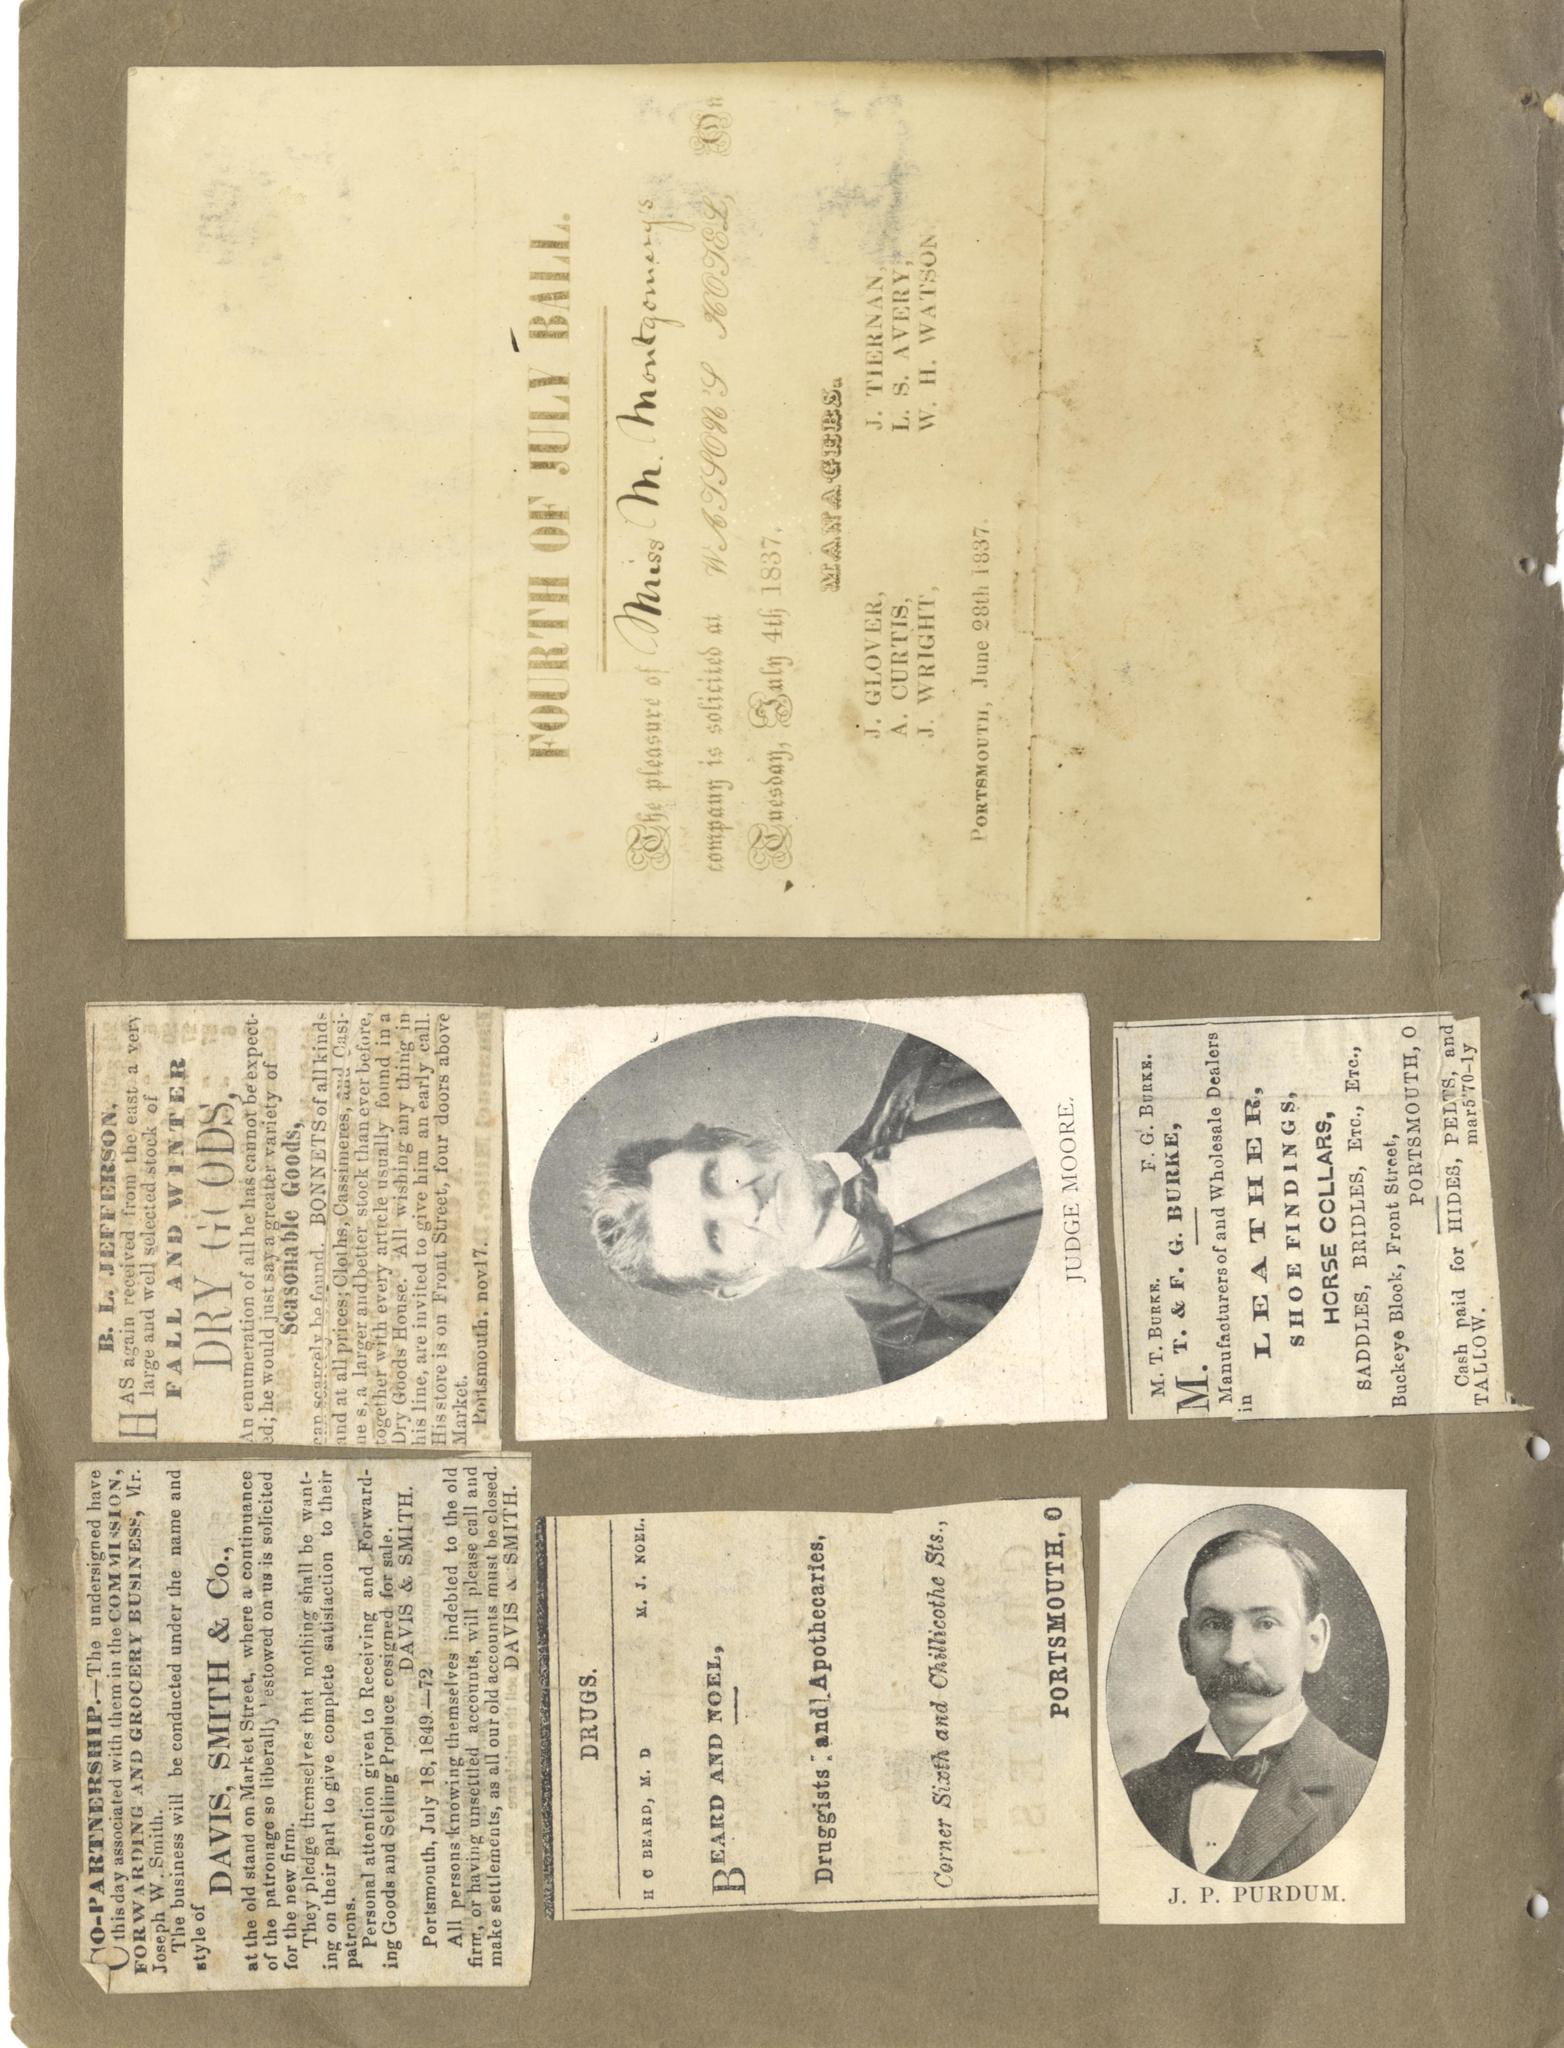 CO-PARTNERSHIP.—The undersigned have
this day associated with them in the COMMISSION,
FORWARDING AND GROCERY BUSINESS, Mr.
Joseph W. Smith.
The business will be conducted under the name and
style of
DAVIS, SMITH & Co.,
at the old stand on Market Street, where a continuance
of the patronage so liberally bestowed on us is solicited
for the new firm.
They pledge themselves that nothing shall be want-
ing on their part to give complete satisfaction to their
patrons.
Personal attention given to Receiving and Forward-
ing Goods and Selling Produce cosigned for sale.
DAVIS & SMITH.
Portsmouth, July 18, 1849.—72
All persons knowing themselves indebted to the old
firm, or having unsettled accounts, will please call and
make settlements, as all our old accounts must be closed.
DAVIS & SMITH.
B. L. JEFFERSON,
HAS again received from the east a very
large and well selected stock of
FALL AND WINTER
DRY GOODS,
An enumeration of all he has cannot be expect-
ed; he would just say a greater variety of
Seasonable Goods,
can scarcely be found. BONNETS of all kinds
and at all prices; Cloths, Cassimeres, and Casi-
ne s, a larger and better stock than ever before,
together with every article usually found in a
Dry Goods House. All wishing any thing in
his line, are invited to give him an early call.
His store is on Front Street, four doors above
Market.
Portsmouth, nov17.
FOURTH OF JULY BALL.
The pleasure of Miss M. Montgomery's
company is solicited at WATSON'S HOTEL, On
Tuesday, July 4th 1837.
MANAGERS.
J. GLOVER, J. TIERNAN,
A. CURTIS, L. S. AVERY,
J. WRIGHT, W. H. WATSON
PORTSMOUTH, June 28th 1837.
DRUGS.
H C BEARD, M. D M. J. NOEL.
BEARD AND NOEL,
Druggists and Apothecaries,
Corner Sixth and Chillicothe Sts.,
PORTSMOUTH, O
JUDGE MOORE.
J. P. PURDUM.
M. T. BURKE. F. G. BURKE.
M. T. & F. G. BURKE,
Manufacturers of and Wholesale Dealers
in
LEATHER,
SHOE FINDINGS,
HORSE COLLARS,
SADDLES, BRIDLES, Etc., Etc.,
Buckeye Block, Front Street,
PORTSMOUTH, O
Cash paid for HIDES, PELTS, and
TALLOW. mar5'70-1y